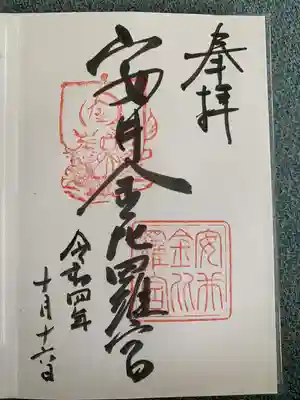 奉拝
安井金比羅宮
令和四年
十月十六日
安井
金比
羅宮